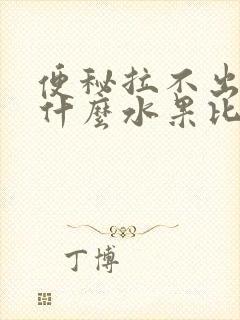 便秘拉不出
什麼水果比
丁博